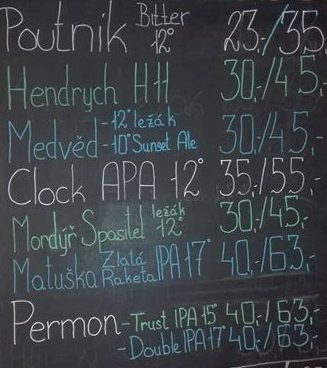 Poutník Bitter 12° 23,-/35
Hendrych H11 30,-/45,-
Medvěd -12° ležák
-10° Sunset Ale 30,-/45,-
Clock APA 12° 35/55,-
Mordýř Spasitel ležák 12° 30,/45,-
Matuška Zlatá Raketa IPA 17° 40,-/63,-
Permon -Trust IPA 15° 40,-/63,-
-Double IPA 17° 40,-/63,-